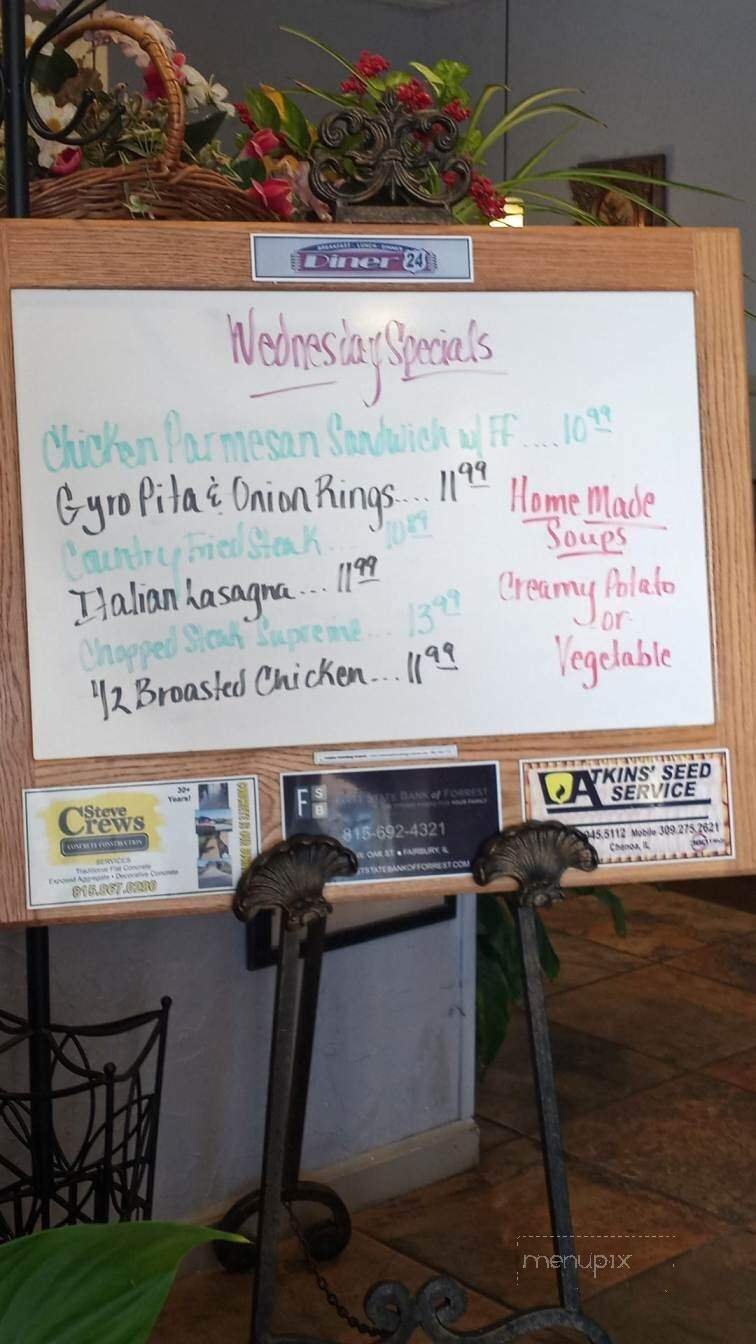 BREAKFAST · LUNCH · DINNER
Diner 24
Wednesday Specials
Chicken Parmesan Sandwich w/ FF .... 10 99
Gyro Pita & Onion Rings.... 11 99
Country Fried Steak ... 10 89
Italian Lasagna ... 11 99
Chopped Steak Supreme... 13 99
1/2 Broasted Chicken... 11 99
Home Made
Soups
Creamy Potato
-or-
Vegetable
30+
Years!
Steve
Crews
CONCRETE CONSTRUCTION
SERVICES
Traditional Flat Concrete
Exposed Aggregate • Decorative Concrete
FSB
STATE BANK of FORREST
YOUR FAMILY
815-692-4321
OAK ST • FAIRBURY, IL
STATEBANKOFFORREST.COM
ATKINS' SEED
SERVICE
945.5112 Mobile 309.275.2621
Chenoa, IL
menupix